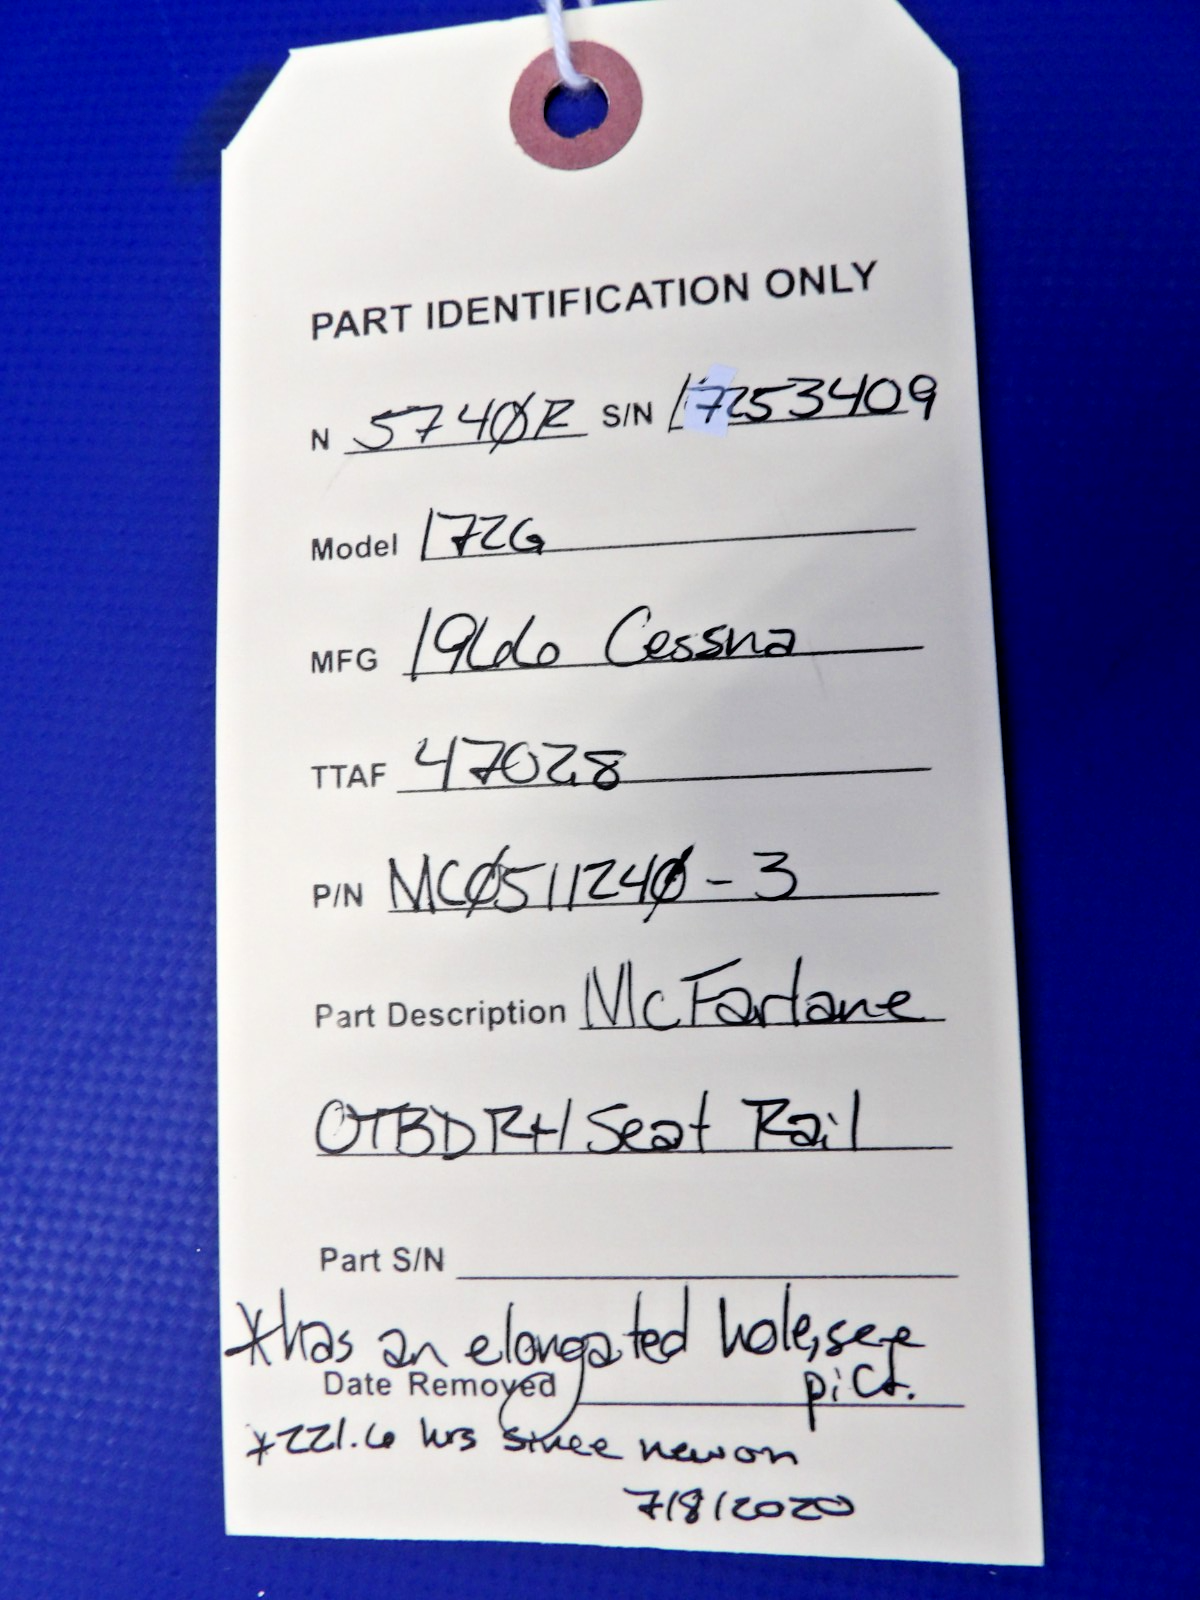 PART IDENTIFICATION ONLY
N 5740R S/N 17253409
Model 172G
MFG 1966 Cessna
TTAF 4702.8
P/N MC0511240-3
Part Description McFarlane
OTBD RH Seat Rail
Part S/N
*has an elongated hole, see
pict.
Date Removed
*221.6 hrs since new on
7/8/2020